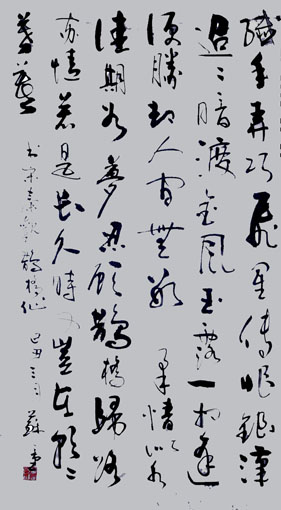 纖手弄巧飛星傳恨銀漢
迢〻暗渡金風玉露一相逢
便勝却人間無數柔情似水
佳期如夢忍顧鵲橋歸路
两情若是長久時又豈在朝〻
暮暮 书宋秦觀鵲橋仙 己丑三月 蘇